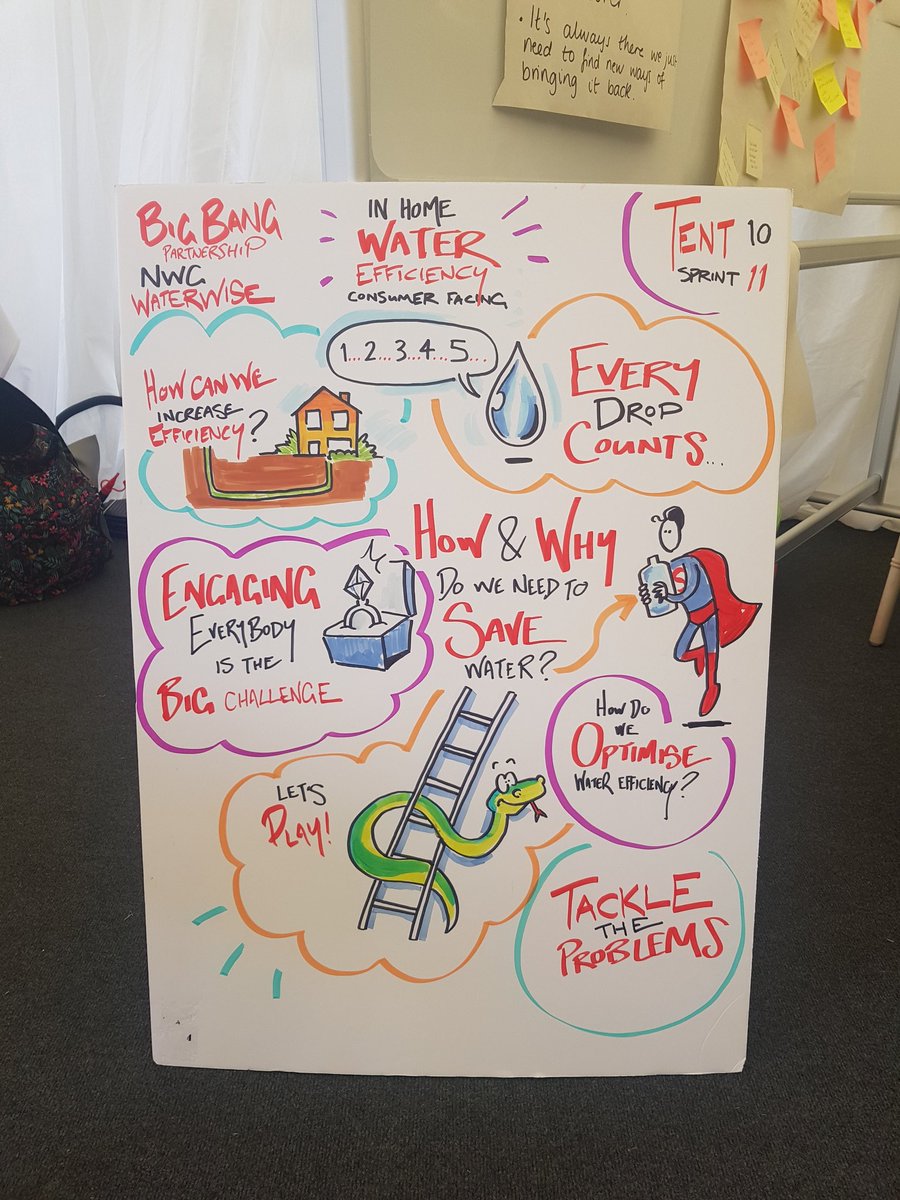 • It's always there we just
need to find new ways of
bringing it back.
BIG BANG
PARTNERSHIP
NWG
WATERWISE
IN HOME
WATER
EFFICIENCY
CONSUMER FACING
TENT 10
SPRINT 11
HOW CAN WE
INCREASE
EFFICIENCY?
1...2...3...4...5...
EVERY
DROP
COUNTS...
ENGAGING
EVERYBODY
IS THE
BIG CHALLENGE
HOW & WHY
DO WE NEED TO
SAVE
WATER?
S
HOW DO
WE
OPTIMISE
WATER EFFICIENCY?
LET'S
PLAY!
TACKLE
THE
PROBLEMS